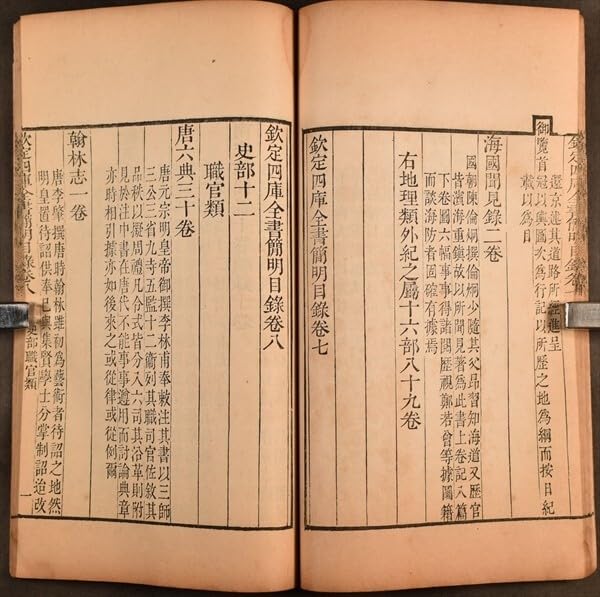 還京進其道路所經進呈
御覽首冠以輿圖次為行記以所歷之地為綱而按日紀
載以為目
海國聞見錄二卷
國朝陳倫炯撰倫炯少隨其父昂習知海道又歷官
皆濱海重鎮故以所聞見著為此書上卷記八篇
下卷圖六幅事事得諸閱歷視鄭若曾等據圖籍
而談海防者固確有據焉
右地理類外紀之屬十六部八十九卷
欽定四庫全書簡明目錄卷七
欽定四庫全書簡明目錄卷八
史部十二
職官類
唐六典三十卷
唐元宗明皇帝御撰李林甫奉敕注其書以三師
三公三省九寺五監十二衛列其職司官佐敘其
品秩以擬周禮凡令式皆分入六司其沿革則附
見於注中書在唐代不能事事遵用而討論典章
亦時相引據亦如後來之或從律或從例爾
翰林志一卷
唐李肇撰唐時翰林雖初為藝術者待詔之地然
明皇置待詔供奉已與集賢學士分掌制詔迨改
欽定四庫全書簡明目錄卷八
史部職官類
一